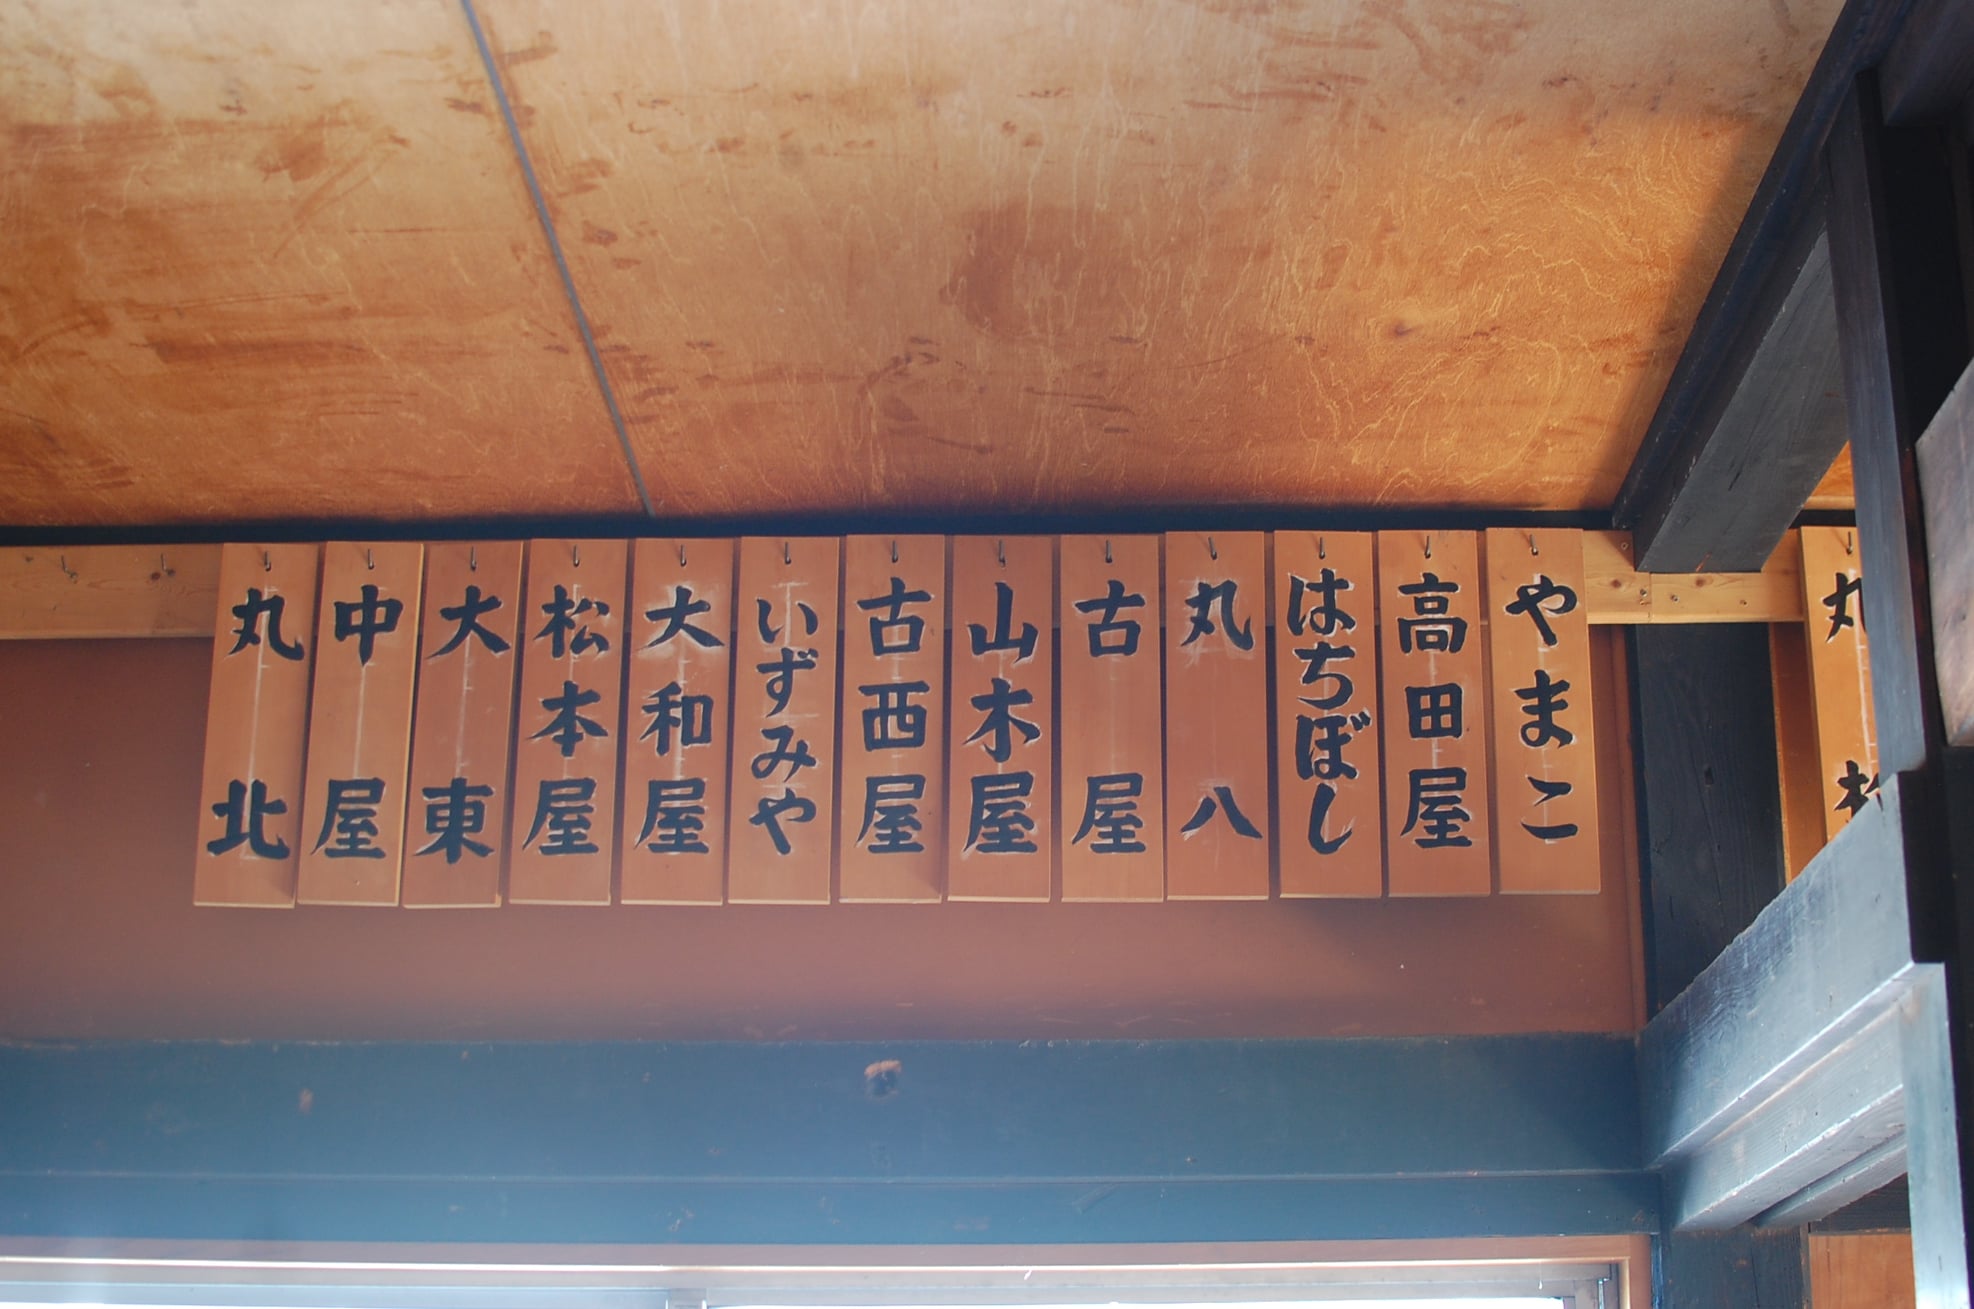 丸松
やまこ
高田屋
はちぼし
丸八
古屋
山木屋
古西屋
いずみや
大和屋
松本屋
大東
中屋
丸北